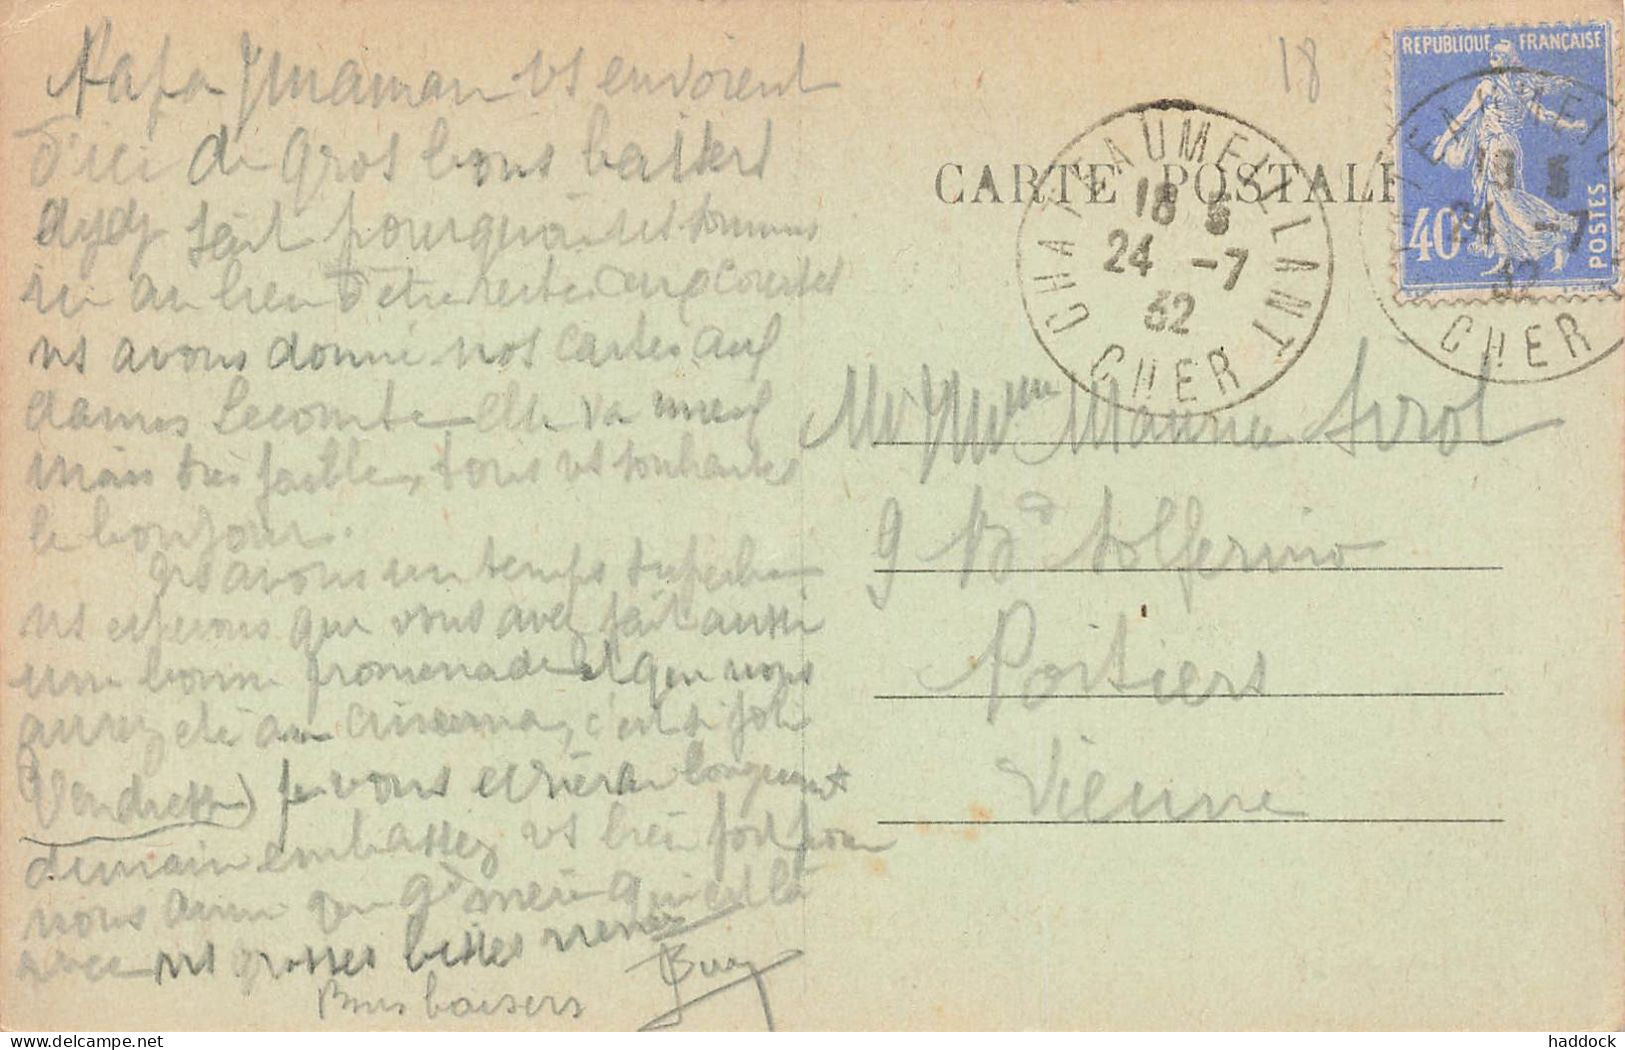 Papa Maman vs envoient
d'ici de gros bons baisers
sait pourquoi ns sommes
ici au lieu d'être restés aux
ns avons donné nos cartes aux
dames Lecomte elle va mieux
mais très faible, tous vs souhaites
le bonjour.
ns avons un temps superbe
ns esperons que vous avez fait aussi
une bonne promenade et que vous
aurez été au cinema, c'est si joli
(Vendresse) je vous écrirai longuement
demain embassez vs bien fort pour
nous ainsi que gd mère qui est là
avec ns grosses bises
Bons baisers
18
CARTE POSTALE
REPUBLIQUE FRANÇAISE
40c
POSTES
CHATEAUMEILLANT
18 5
24 -7
32
CHER
CHATEAUMEILLANT
18 5
24 -7
32
CHER
Mr & Mme Maurice Sirot
9 Bd Solferino
Poitiers
Vienne
haddock
https://www.delcampe.net